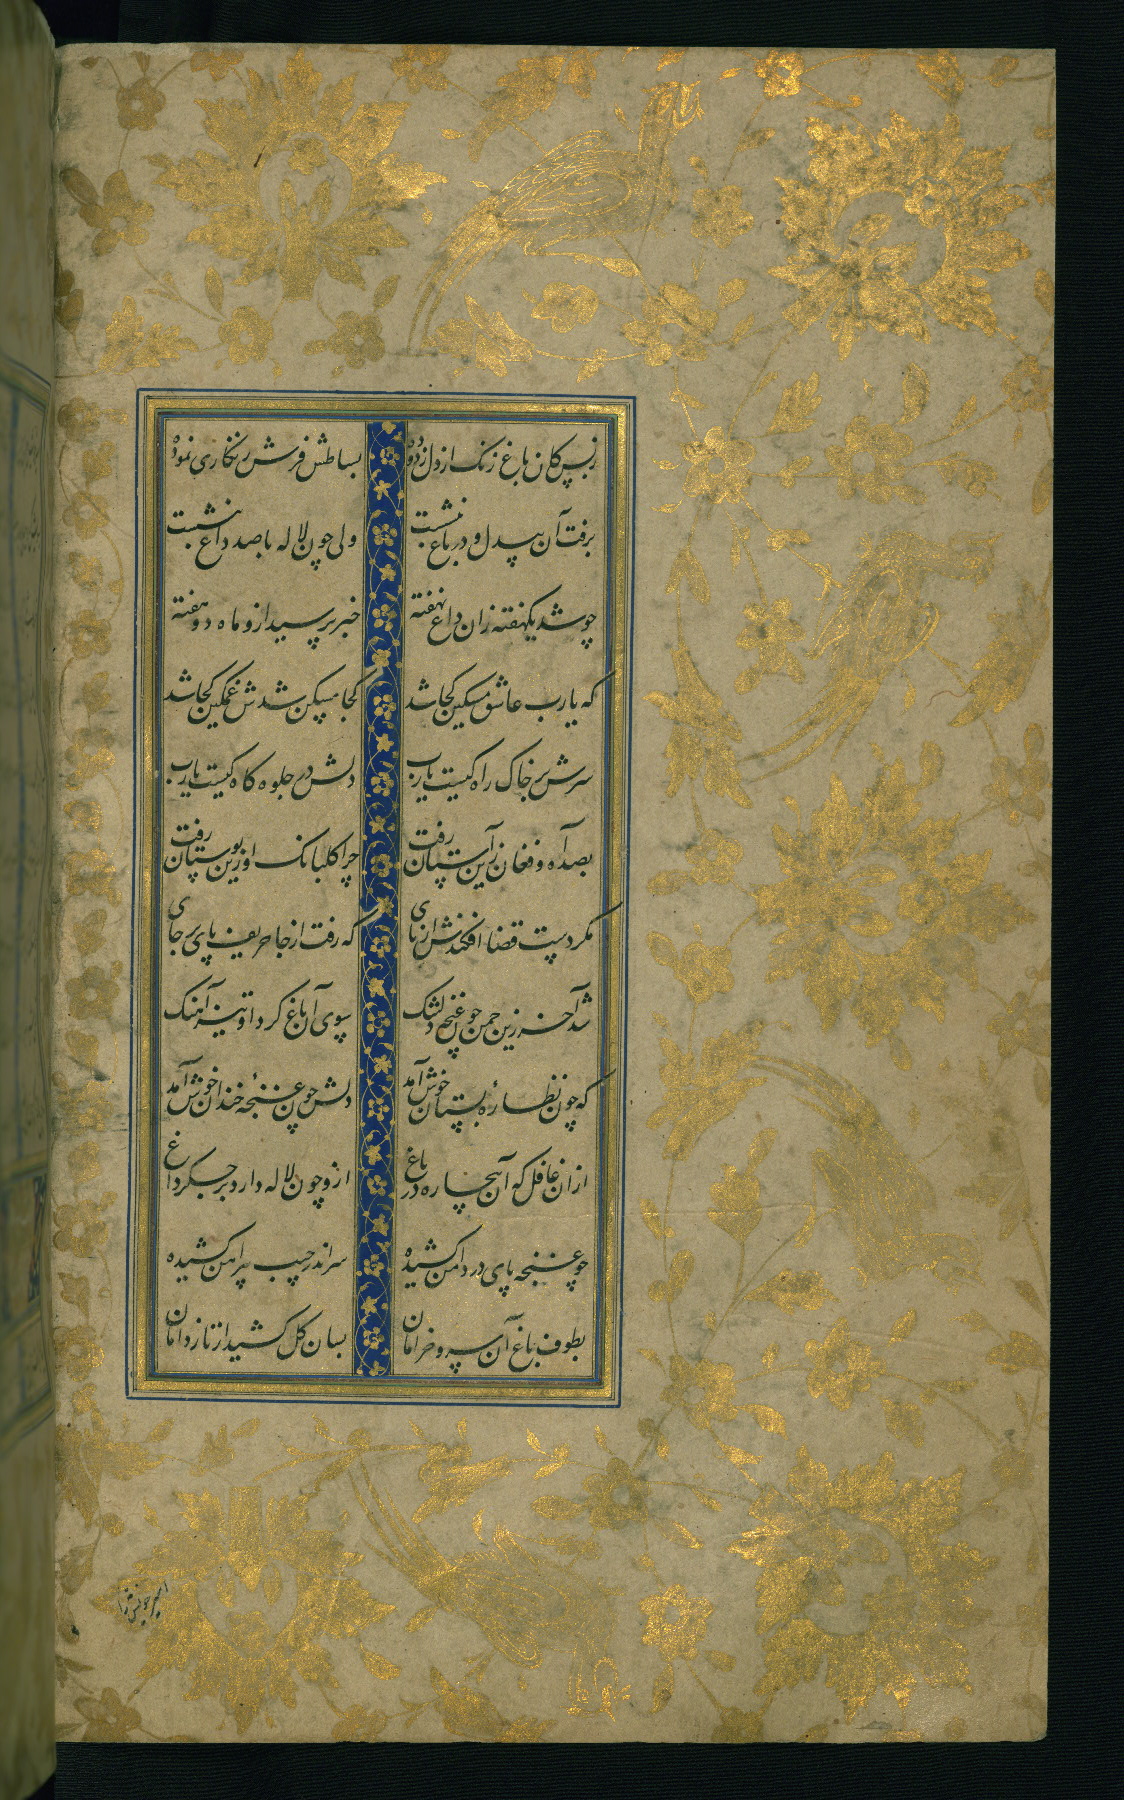 زبس کان باغ زنک از دل زدوده بساطش فرش زنکاری نموده
برفت آن بیدل و در باغ بنشست ولی چون لاله با صد داغ بنشست
چو شد یکهفته زان داغ نهفته خبر پرسید ازو ماه دو هفته
که یارب عاشق مسکین کجا شد کجا مسکن شدش غمکین کجا شد
سرش بر خاک راه کیست یارب دلش در جلوه کاه کیست یارب
بصد آه و فغان زین آستان رفت چرا کلبانک او زین بوستان رفت
مکر دست قضا افکندش از پای که رفت از جا حریف پای بر جای
شد آخر زین چمن چون غنچه دلتنک سوی آن باغ کرد او تیز آهنک
که چون نظارهٔ بستان خوش آمد دلش چون غنچهٔ خندان خوش آمد
ازان غافل که آن بیچاره در باغ ازو چون لاله دارد بر جکر داغ
چو غنچه پای در دامن کشیده سر اندر جیب پیراهن کشیده
بطوف باغ آن سرو خرامان بسان کل کشید از ناز دامان